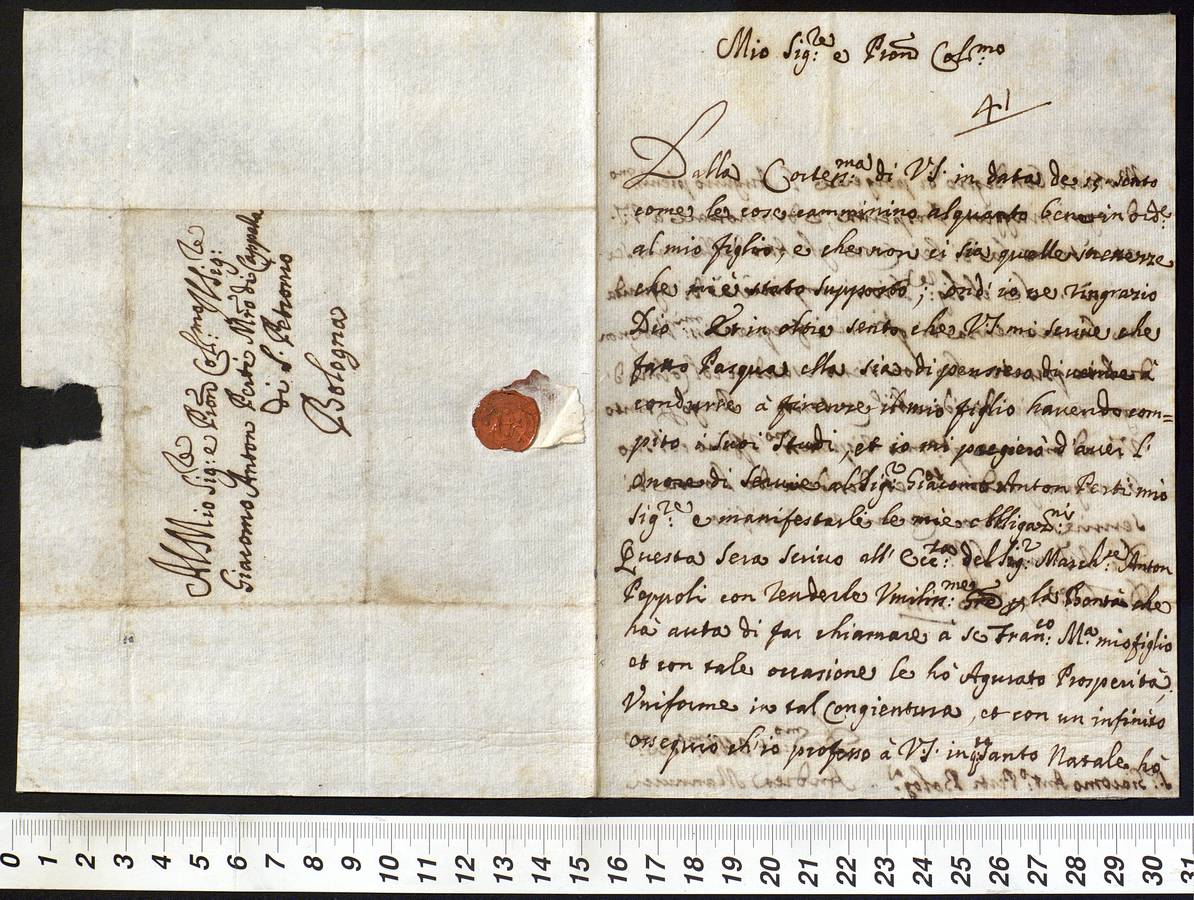 Al Mio Sig:re e Pron Col:mo Il Sig:re
Giacomo Anton Perti Mro di Cappella
di S. Petronio
Bologna
Mio Sig:re e Pron Col:mo
41
Dalla Cortes:ma di V.S. in data de 15 sento
come le cose camminino alquanto bene in
al mio figlio, e che non ci sia quelle strettezze
che mi è stato supposto; ond' io ne ringrazio
Dio. Et in oltre sento che V.S. mi scrive che
fatto Pasqua ella sia di pensiero di
condurre à firenze il mio figlio havendo com=
pito i suoi Studi, et io mi pregierò d'aver l'
onore di servire al Sig:r Giacomo Anton Perti mio
Sig:re e manifestarli le mie obbligaz:ni
Questa sera scrivo all' Ecc:za del Sig:r March:se Anton
Peppoli con renderle Umiliss:me Gre p la Bontà che
hà auta di far chiamare à se Fran:co M:a mio figlio
et con tale occasione le hò Agurato Prosperità
Uniforme in tal congientura, et con un infinito
ossequio ch'io professo à V.S. in Santo Natale hò
0 1 2 3 4 5 6 7 8 9 10 11 12 13 14 15 16 17 18 19 20 21 22 23 24 25 26 27 28 29 30 31